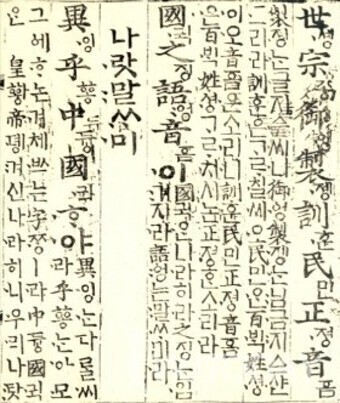 世솅宗조ᇰ御ᅌᅥᆼ製졩訓훈民민正져ᇰ音ᅙᅳᆷ
製졩는글지ᅀᅳᆯ씨니御ᅌᅥᆼ製졩는님금지ᅀᅳ샨
그리라訓훈은ᄀᆞᄅᆞ칠씨오民민ᄋᆞᆫ百ᄇᆡᆨ姓셔ᇰ
이오音ᅙᅳᆷ은소리니訓훈民민正져ᇰ音ᅙᅳᆷ
은百ᄇᆡᆨ姓셔ᇰᄀᆞᄅᆞ치시논正져ᇰᄒᆞᆫ소리라
國귁之징語ᅌᅥᆼ音ᅙᅳᆷ이國귁ᄋᆞᆫ나라히라之징ᄂᆞᆫ입
겨지라語ᅌᅥᆼ는말ᄊᆞ미라
나랏말ᄊᆞ미
異잉乎ᅘᅩᆼ中듀ᇰ國귁ᄒᆞ야異잉ᄂᆞᆫ다ᄅᆞᆯ씨
라乎ᅘᅩᆼᄂᆞᆫ아모
그ᅌᅦᄒᆞ논겨체쓰는字ᄍᆞᆼㅣ라中듀ᇰ國귁
ᄋᆞᆫ皇ᅘᅪᇰ帝뎽겨신나라히니우리나랏